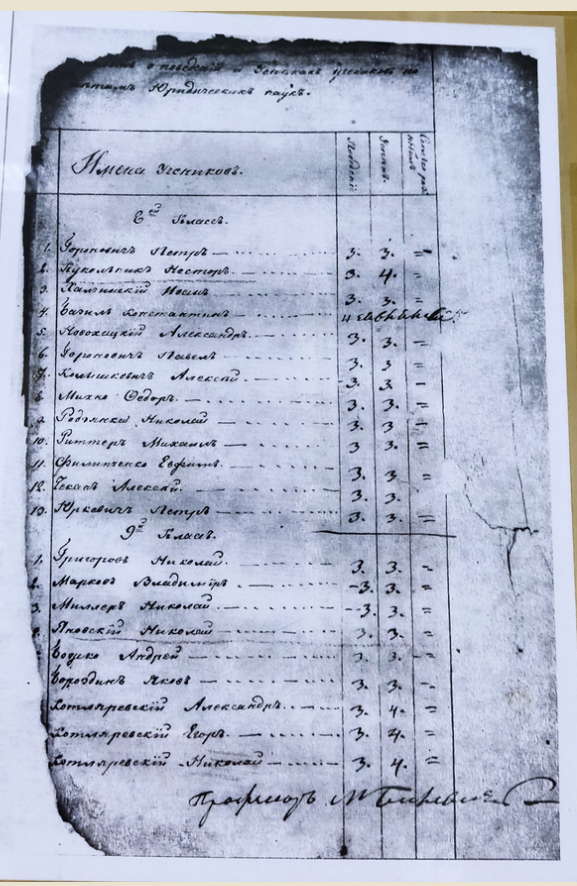 о поведении и успехахъ учениковъ по
Юридическихъ наукъ.
Имена Учениковъ. Поведенія Успѣхъ.
6й Классъ.
1. Гороновичъ Петръ 3. 3. =
2. Кукольникъ Несторъ. 3. 4. =
3. Халчинскій Иванъ 3. 3. =
4. Базили Константинъ 4
5. Новохацкій Александръ. 3. 3. =
6. Гороновичъ Павелъ 3. 3 =
7. Колышкевичъ Алексѣй. 3. 3 =
8. Михно Ѳедоръ. 3. 3. =
9. Родзянка Николай 3. 3. =
10. Риттеръ Михаилъ 3 3. =
11. Филипченко Евфимъ. 3. 3. =
12. Чеканъ Алексѣй. 3. 3.
13. Юркевичъ Петръ 3. 3. =
9й Классъ.
1. Григоровъ Николай. 3. 3. =
2. Марковъ Владиміръ 3. 3. =
3. Миллеръ Николай 3. 3. =
Яновскій Николай 3. 3. =
Божко Андрей 3. 3. =
Бороздинъ Яковъ 3. 3. =
Котляревскій Александръ. 3. 4. =
Котляревскій Егоръ. 3. 4. =
Котляревскій Николай 3. 4. =
Професоръ М